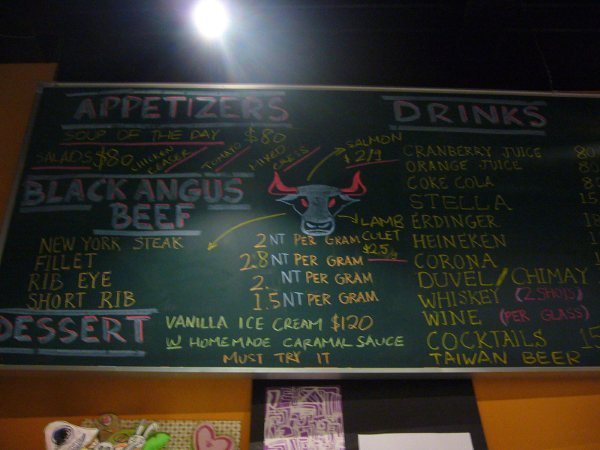 APPETIZERS
SOUP OF THE DAY $80
SALADS $80 TOMATO MIXED
SALMON
BLACK ANGUS
BEEF
LAMB
NEW YORK STEAK 2 NT PER GRAM
FILLET 2.8 NT PER GRAM
RIB EYE 2. NT PER GRAM
SHORT RIB 1.5 NT PER GRAM
DESSERT
VANILLA ICE CREAM $120
W HOMEMADE CARAMAL SAUCE
MUST TRY IT
DRINKS
CRANBERRY JUICE 80
ORANGE JUICE 80
COKE COLA 8
STELLA 15
ERDINGER 18
HEINEKEN 1
CORONA 1
DUVEL/CHIMAY
WHISKEY (2 SHOTS)
WINE (PER GLASS)
COCKTAILS 15
TAIWAN BEER